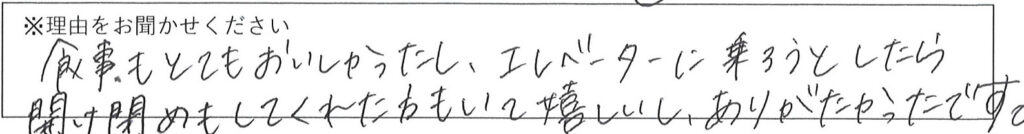 ※理由をお聞かせください
食事もとてもおいしかったし、エレベーターに乗ろうとしたら
開け閉めもしてくれた方もいて嬉しいし、ありがたかったです。